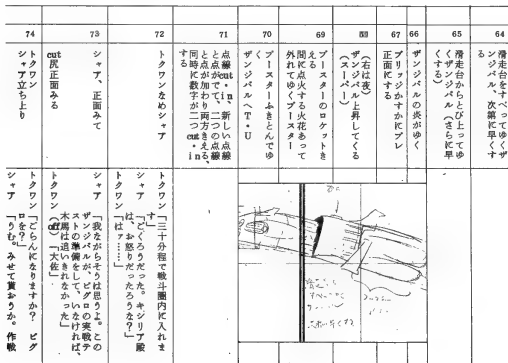 64
滑走台をすべってゆくザ
ンジバル、次第に早くす
る
65
滑走台からとび上ってゆ
くザンジバル(さらに早
くする)
66
ザンジバルの炎がゆく
67
ブリッジかすかにブレ
正面にする
(右は夜)
ザンジバル上昇してくる
(スーパー)
69
ブースターのロケットき
える
間に点火する火花あって
外れてゆくブースター
70
ブースターふきとんでゆ
く
ザンジバルへT・U
71
点線cut・in、新しい点線
と点がでて、二つの点線
と点が加わり両方きえる、
同時に数字が二つcut・in
する
72
トクワンなめシャア
トクワン「三十分程で戦斗圏内に入れま
す」
シャア「ごくろうだった。キシリア殿
は、お怒りだったろうな?」
トクワン「はァ……」
73
シャア、正面みて
cut尻正面みる
シャア「我ながらそうは思うよ。この
ザンジバルが、ビグロの実戦テ
ストの準備をして、いなければ、
木馬は追いきれなかった」
トクワン(off)「大佐」
74
トクワン
シャア立ち上り
トクワン「ごらんになりますか? ビグ
ロを?」
シャア「うむ。みせて貰おうか。作戦